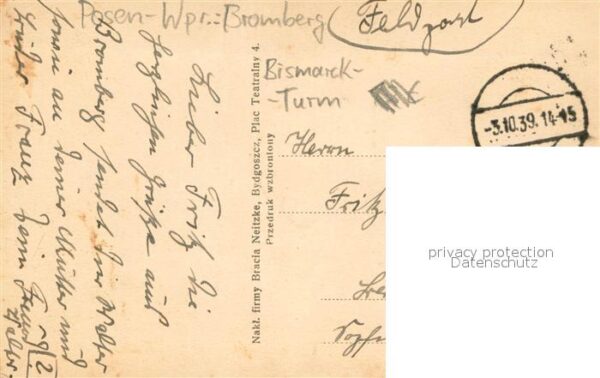 Posen-Wpr.: Bromberg
Feldpost
Bismarck-
-Turm
-3.10.39.14-15
Lieber Fritz die
herzlichsten Grüße aus
Bromberg sendet Dir Walter
sowie an Deine Mutter und
Bruder Franz Dein
Walter.
Nakł. firmy Bracia Neitzke, Bydgoszcz, Plac Teatralny 4.
Przedruk wzbroniony
Herrn
Fritz
privacy protection
Datenschutz